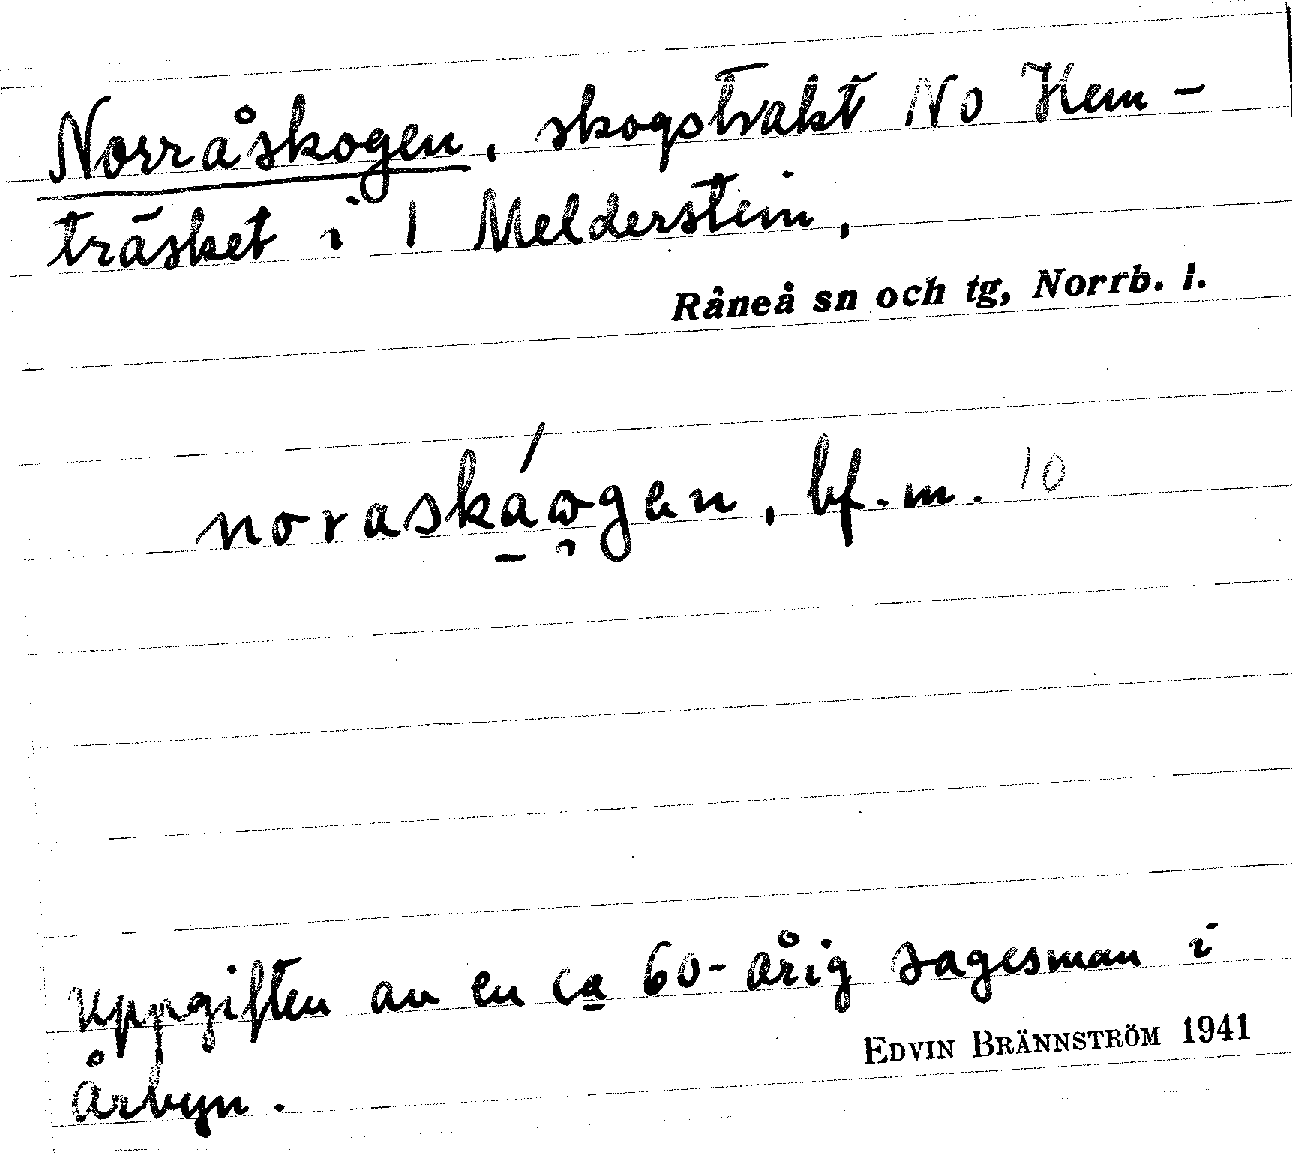 Norråskogen, skogstrakt No Hem-
träsket i 1 Melderstein,
Råneå sn och tg, Norrb. l.
noraskáωgen, bf. m. 10
Uppgiften av en ca 60-årig sagesman i
Årbyn.
EDVIN BRÄNNSTRÖM 1941